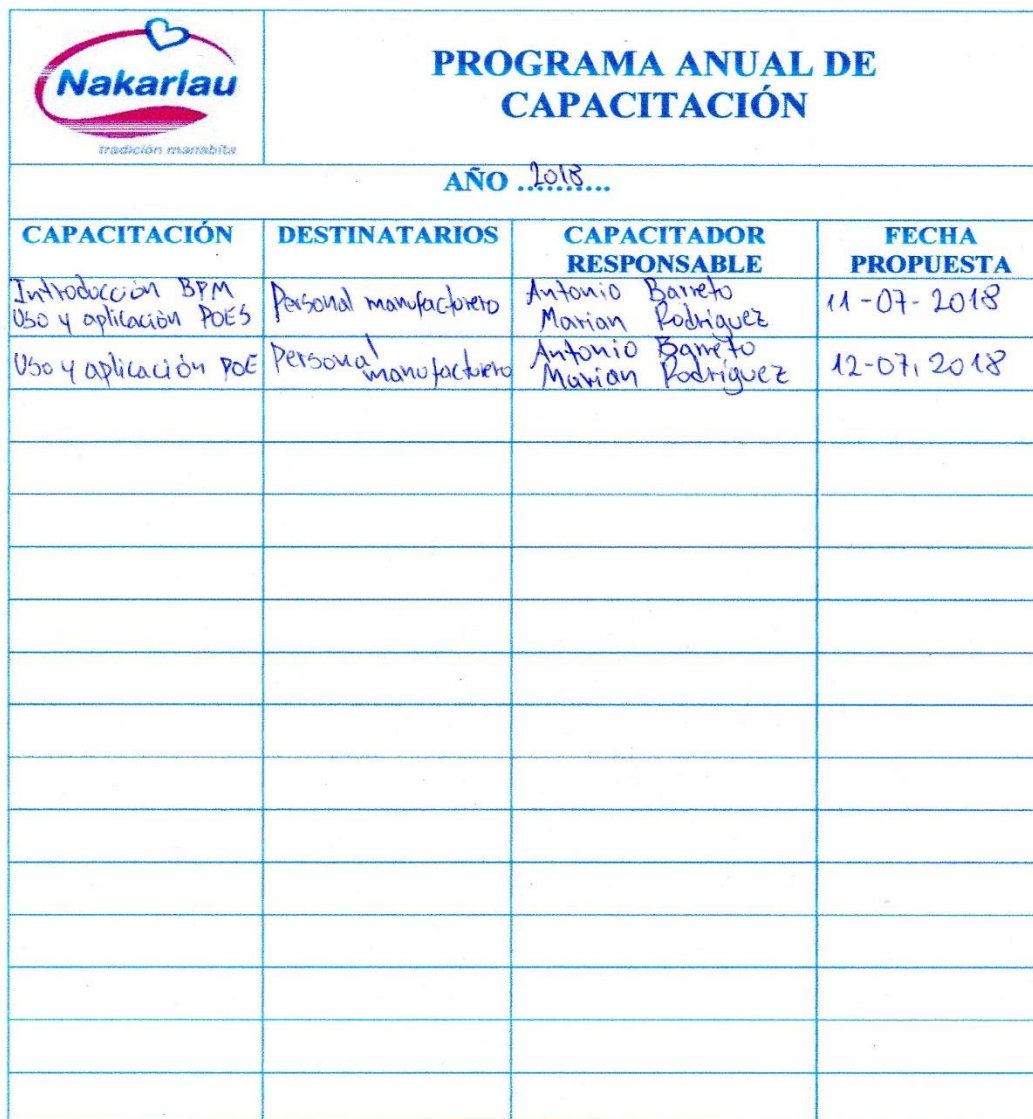 Nakarlau
tradición manabita
PROGRAMA ANUAL DE
CAPACITACIÓN
AÑO 2018..........
CAPACITACIÓN DESTINATARIOS CAPACITADOR RESPONSABLE FECHA PROPUESTA
Introducción BPM
Uso y aplicación POES
Personal manufacturero
Antonio Barreto
Marian Rodriguez
11-07-2018
Uso y aplicación POE
Personal
manufacturero
Antonio Barreto
Marian Rodriguez
12-07-2018